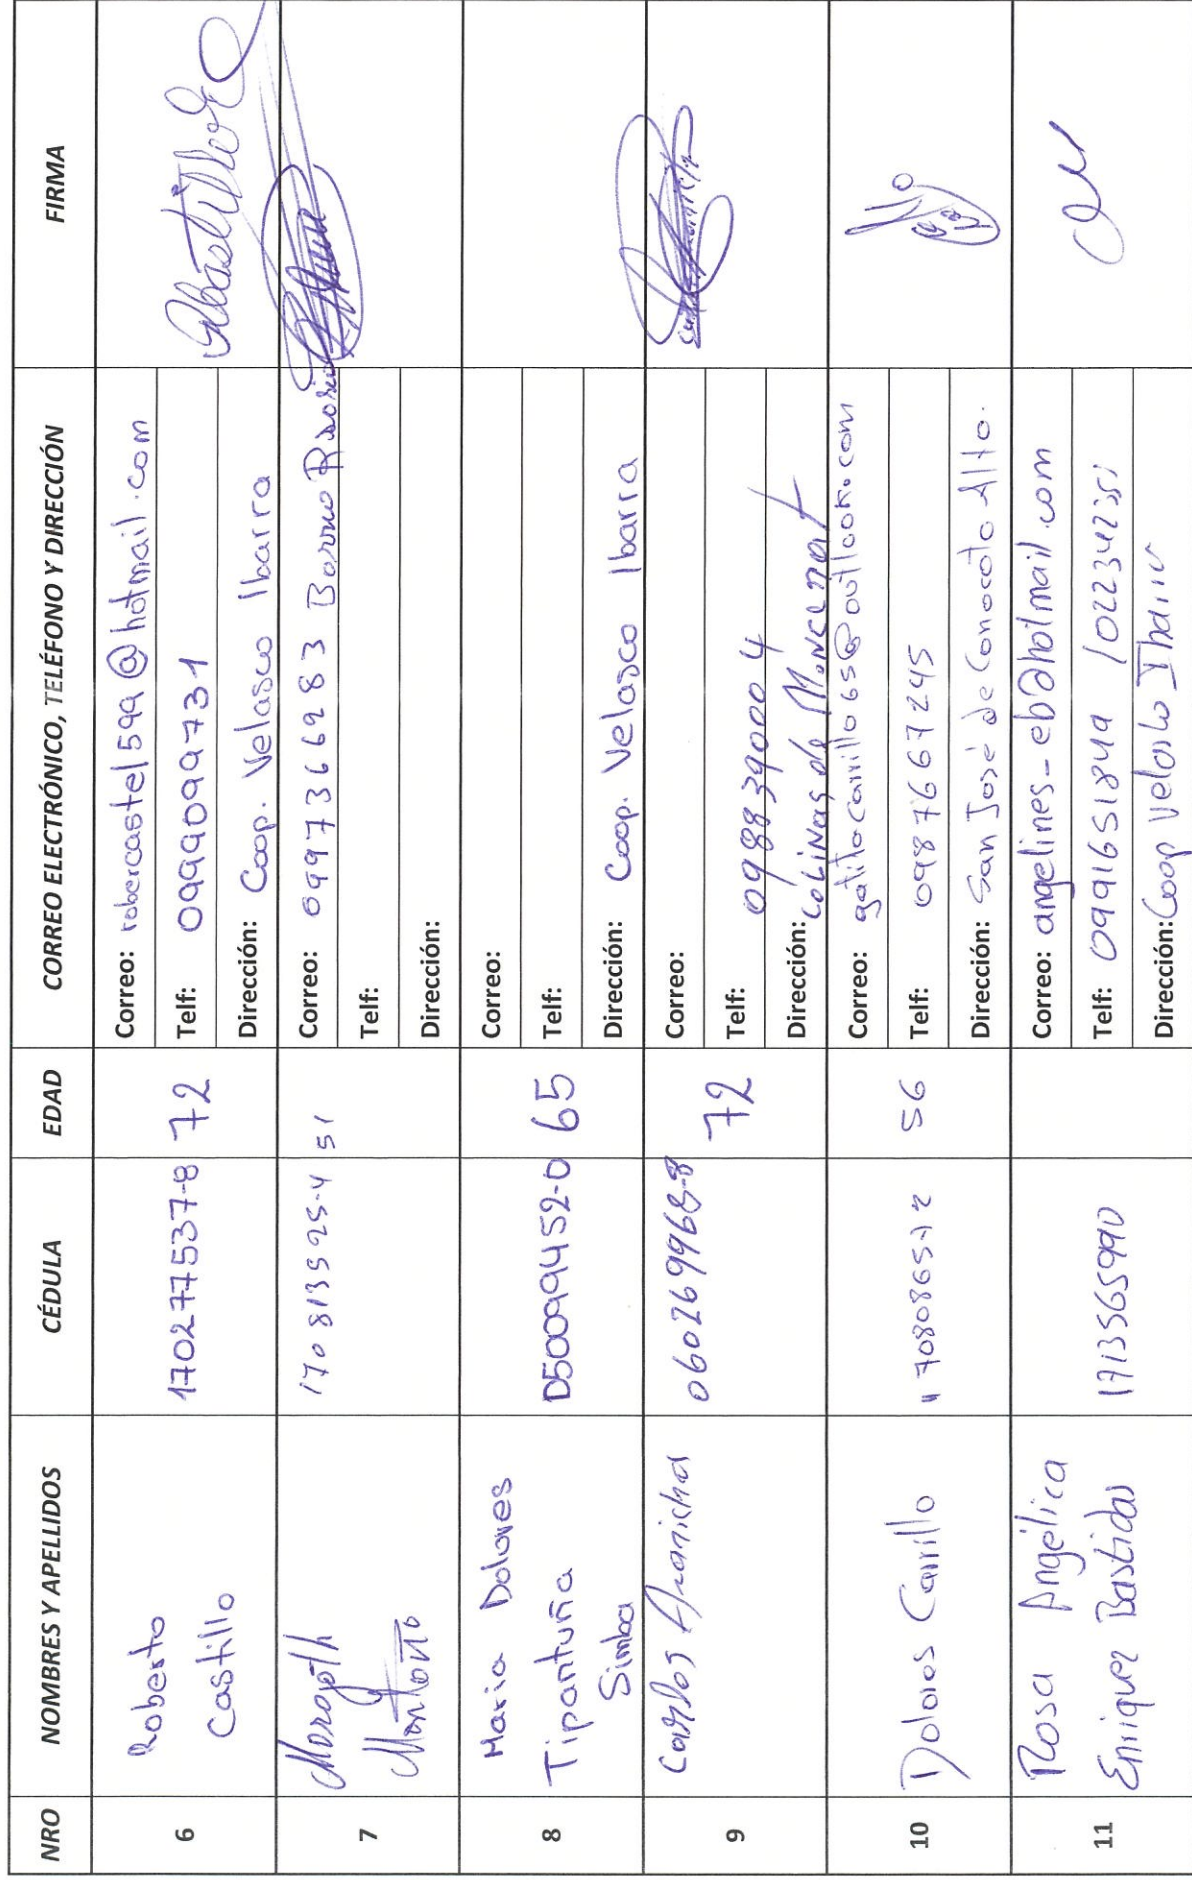 NRO NOMBRES Y APELLIDOS CÉDULA EDAD CORREO ELECTRÓNICO, TELÉFONO Y DIRECCIÓN FIRMA
6 Roberto Castillo 170277537-8 72
Correo: robercastel599@hotmail.com
Telf: 0999099731
Dirección: Coop. Velasco Ibarra
7 Margoth Montaño 170813595-4 51
Correo: 0997366283 Barrio
Telf:
Dirección:
8 Maria Dolores Tipantuña Simba 050099452-0 65
Correo:
Telf:
Dirección: Coop. Velasco Ibarra
9 Carlos 060269968-8 72
Correo:
Telf: 0988390004
Dirección: Colinas de
10 Dolores Carrillo 56
Correo: gatitacarrillo65@outlook.com
Telf: 0987667245
Dirección: San José de Conocoto Alto.
11 Rosa Angélica Enriquez Bastidas 1713565990
Correo: angelines-eb@hotmail.com
Telf: 0991651849 / 022342351
Dirección: Coop Velasco Ibarra